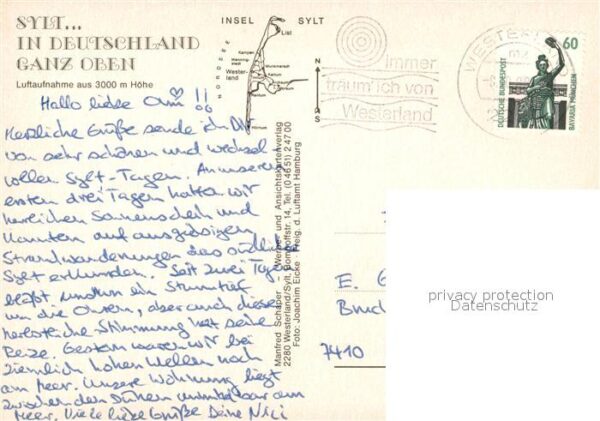 SYLT...
IN DEUTSCHLAND
GANZ OBEN
Luftaufnahme aus 3000 m Höhe
INSEL SYLT
NORDSEE
List
Kampen
Wenningstedt
Westerland
Munkmarsch
Keitum
Rantum
Hörnum
N
S
Immer
traumlich von
Westerland
WESTERL
60
DEUTSCHE BUNDESPOST
BAVARIA MÜNCHEN
Hallo liebe Omi !!
Herzliche Grüße sende ich Dir
von sehr schönen und wechsel
vollen Sylt-Tagen. An unseren
ersten drei Tagen hatten wir
herrlichen Sonnenschein und
konnten auf ausgiebigen
Strandwanderungen das südliche
Sylt erkunden. Seit zwei Tagen
bläst uns nun ein Sturmtief
um die Ohren, aber auch diese
herbstliche Stimmung hat seine
Reize. Gestern waren wir bei
ziemlich hohen Wellen noch
am Meer. Unsere Wohnung liegt
zwischen den Dünen unmittelbar am
Meer. Viele liebe Grüße Deine
Manfred Schaper - Werbe- und Ansichtskartenverlag
2280 Westerland/Sylt, 14, Tel. (0 46 51) 2 47 00
Foto: Joachim Eicke · Freig. d. Luftamt Hamburg
E. G
Bruc
7410
privacy protection
Datenschutz